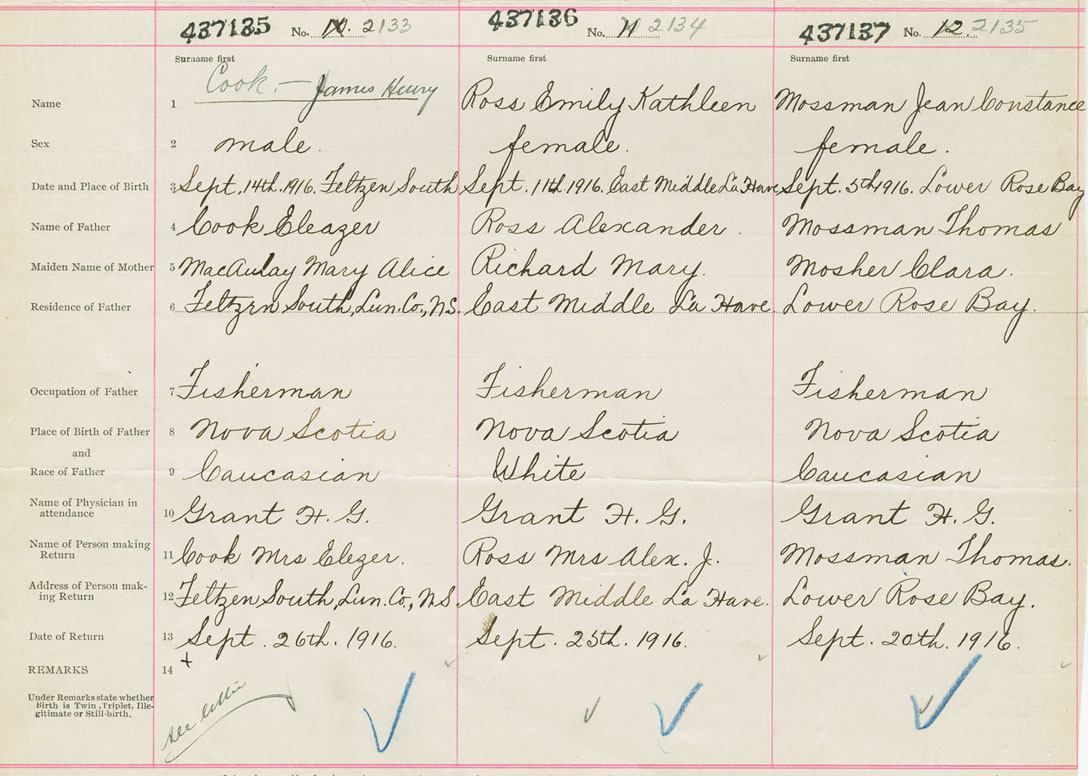 437135 No. 10. 2133 437136 No. 11 2134 437137 No. 12. 2135
Surname first Surname first Surname first
Name 1 Cook. — James Henry Ross Emily Kathleen Mossman Jean Constance
Sex 2 male. female. female.
Date and Place of Birth 3 Sept. 14th. 1916. Feltzen South Sept. 11th 1916. East Middle La Have Sept. 5th 1916. Lower Rose Bay
Name of Father 4 Cook Eleazer Ross Alexander. Mossman Thomas
Maiden Name of Mother 5 MacAulay Mary Alice Richard Mary. Mosher Clara.
Residence of Father 6 Feltzrn South, Lun. Co., N.S. East Middle La Have. Lower Rose Bay.
Occupation of Father 7 Fisherman Fisherman Fisherman
Place of Birth of Father 8 Nova Scotia Nova Scotia Nova Scotia
and
Race of Father 9 Caucasian White Caucasian
Name of Physician in
attendance 10 Grant H. G. Grant H. G. Grant H. G.
Name of Person making
Return 11 Cook Mrs Elezer. Ross Mrs Alex. J. Mossman Thomas.
Address of Person mak-
ing Return 12 Feltzen South, Lun. Co., N.S. East Middle La Have. Lower Rose Bay.
Date of Return 13 Sept. 26th. 1916. Sept. 25th. 1916. Sept. 20th. 1916.
REMARKS 14 +
Under Remarks state whether
Birth is Twin, Triplet, Ille-
gitimate or Still-birth.
see